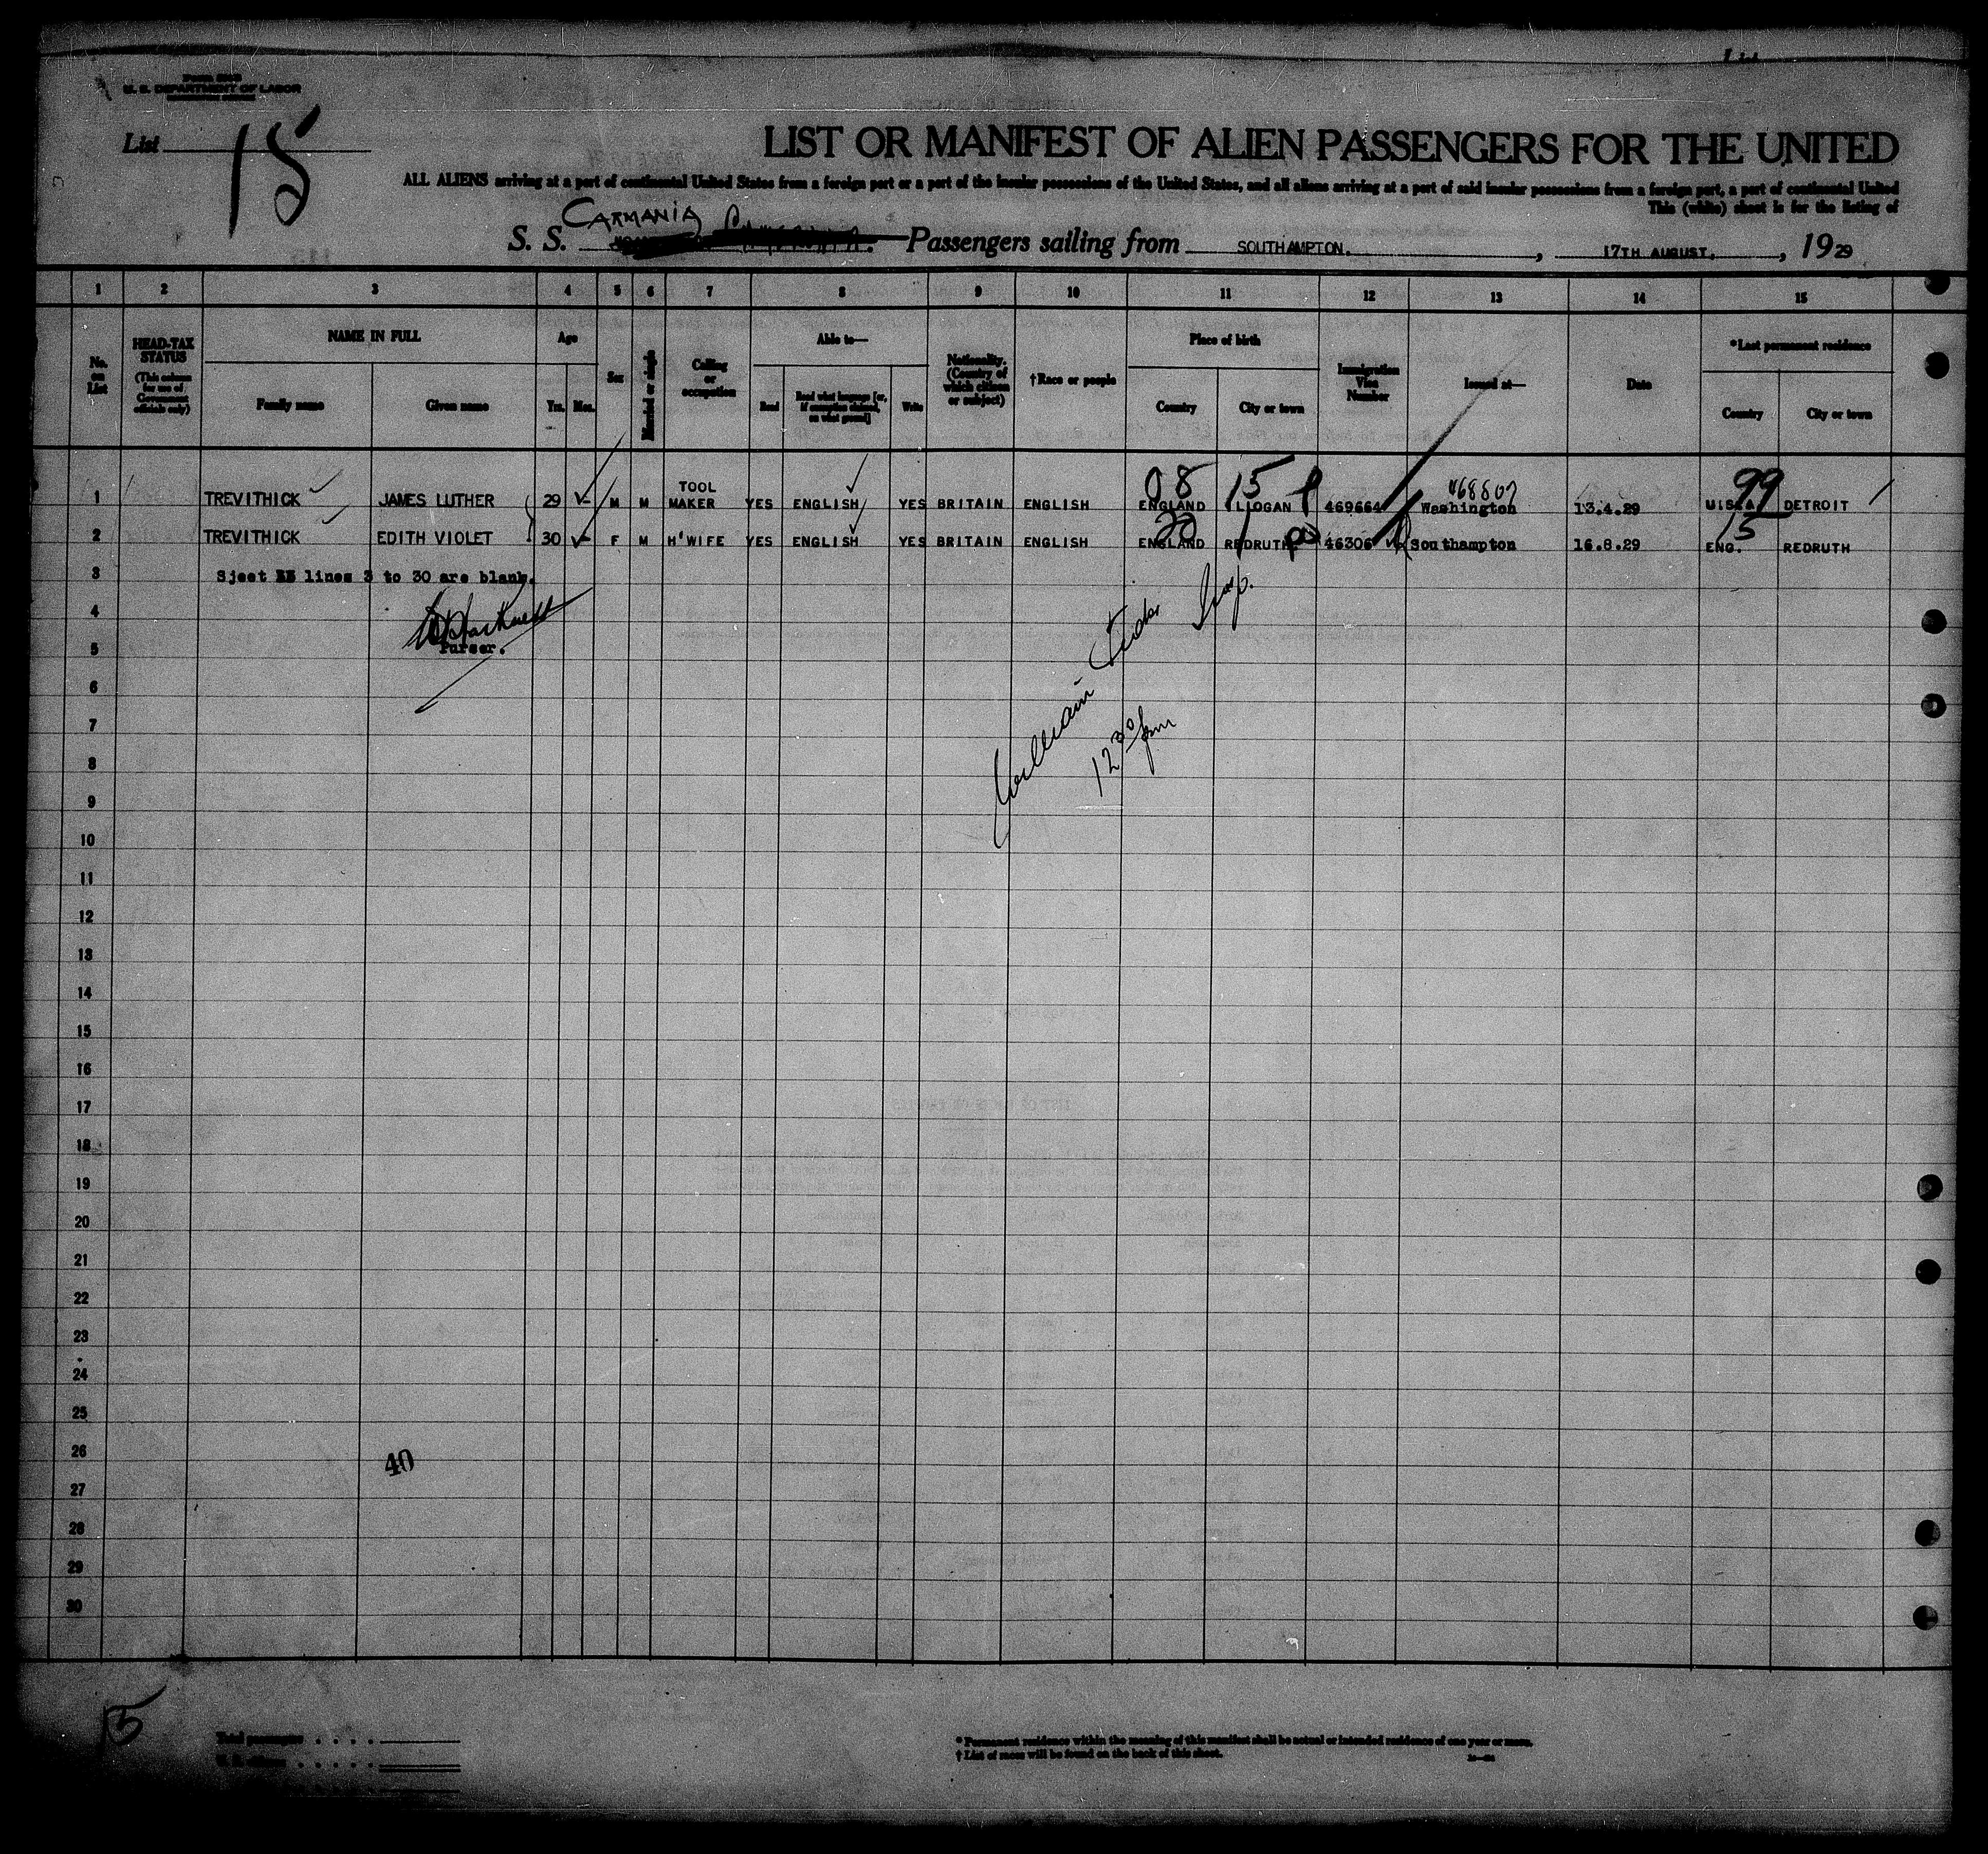 List
U. S. DEPARTMENT OF LABOR
List 15
LIST OR MANIFEST OF ALIEN PASSENGERS FOR THE UNITED
ALL ALIENS arriving at a port of continental United States from a foreign port or a port of the insular possessions of the United States, and all aliens arriving at a port of said insular possessions from a foreign port, a port of continental United
This (white) sheet is for the listing of
CARMANIA
S. S. Passengers sailing from SOUTHAMPTON. , 17TH AUGUST. , 1929
1 2 3 4 5 6 7 8 9 10 11 12 13 14 15
No. on List
HEAD-TAX STATUS (This column for use of Government officials only)
NAME IN FULL
Family name Given name
Age
Yrs. Mos.
Sex
Married or single
Calling or occupation
Able to—
Read Read what language [or, if exemption claimed, on what ground] Write
Nationality. (Country of which citizen or subject)
†Race or people
Place of birth
Country City or town
Immigration Visa Number
Issued at—
Date
*Last permanent residence
Country City or town
08 15 468807 99
1 TREVITHICK JAMES LUTHER 29 M M TOOL MAKER YES ENGLISH YES BRITAIN ENGLISH ENGLAND ILLOGAN 469664 Washington 13.4.29 U.S.A. DETROIT
20 1 15
2 TREVITHICK EDITH VIOLET 30 F M H'WIFE YES ENGLISH YES BRITAIN ENGLISH ENGLAND REDRUTH 46306 Southampton 16.8.29 ENG. REDRUTH
3 Sjeet lines 3 to 30 are blank.
4
5 Purser.
William Insp.
12 30 pm
6
7
8
9
10
11
12
13
14
15
16
17
18
19
20
21
22
23
24
25
26 40
27
28
29
30
15
Total passengers
U. S. citizens
* Permanent residence within the meaning of this manifest shall be actual or intended residence of one year or more.
† List of races will be found on the back of this sheet.